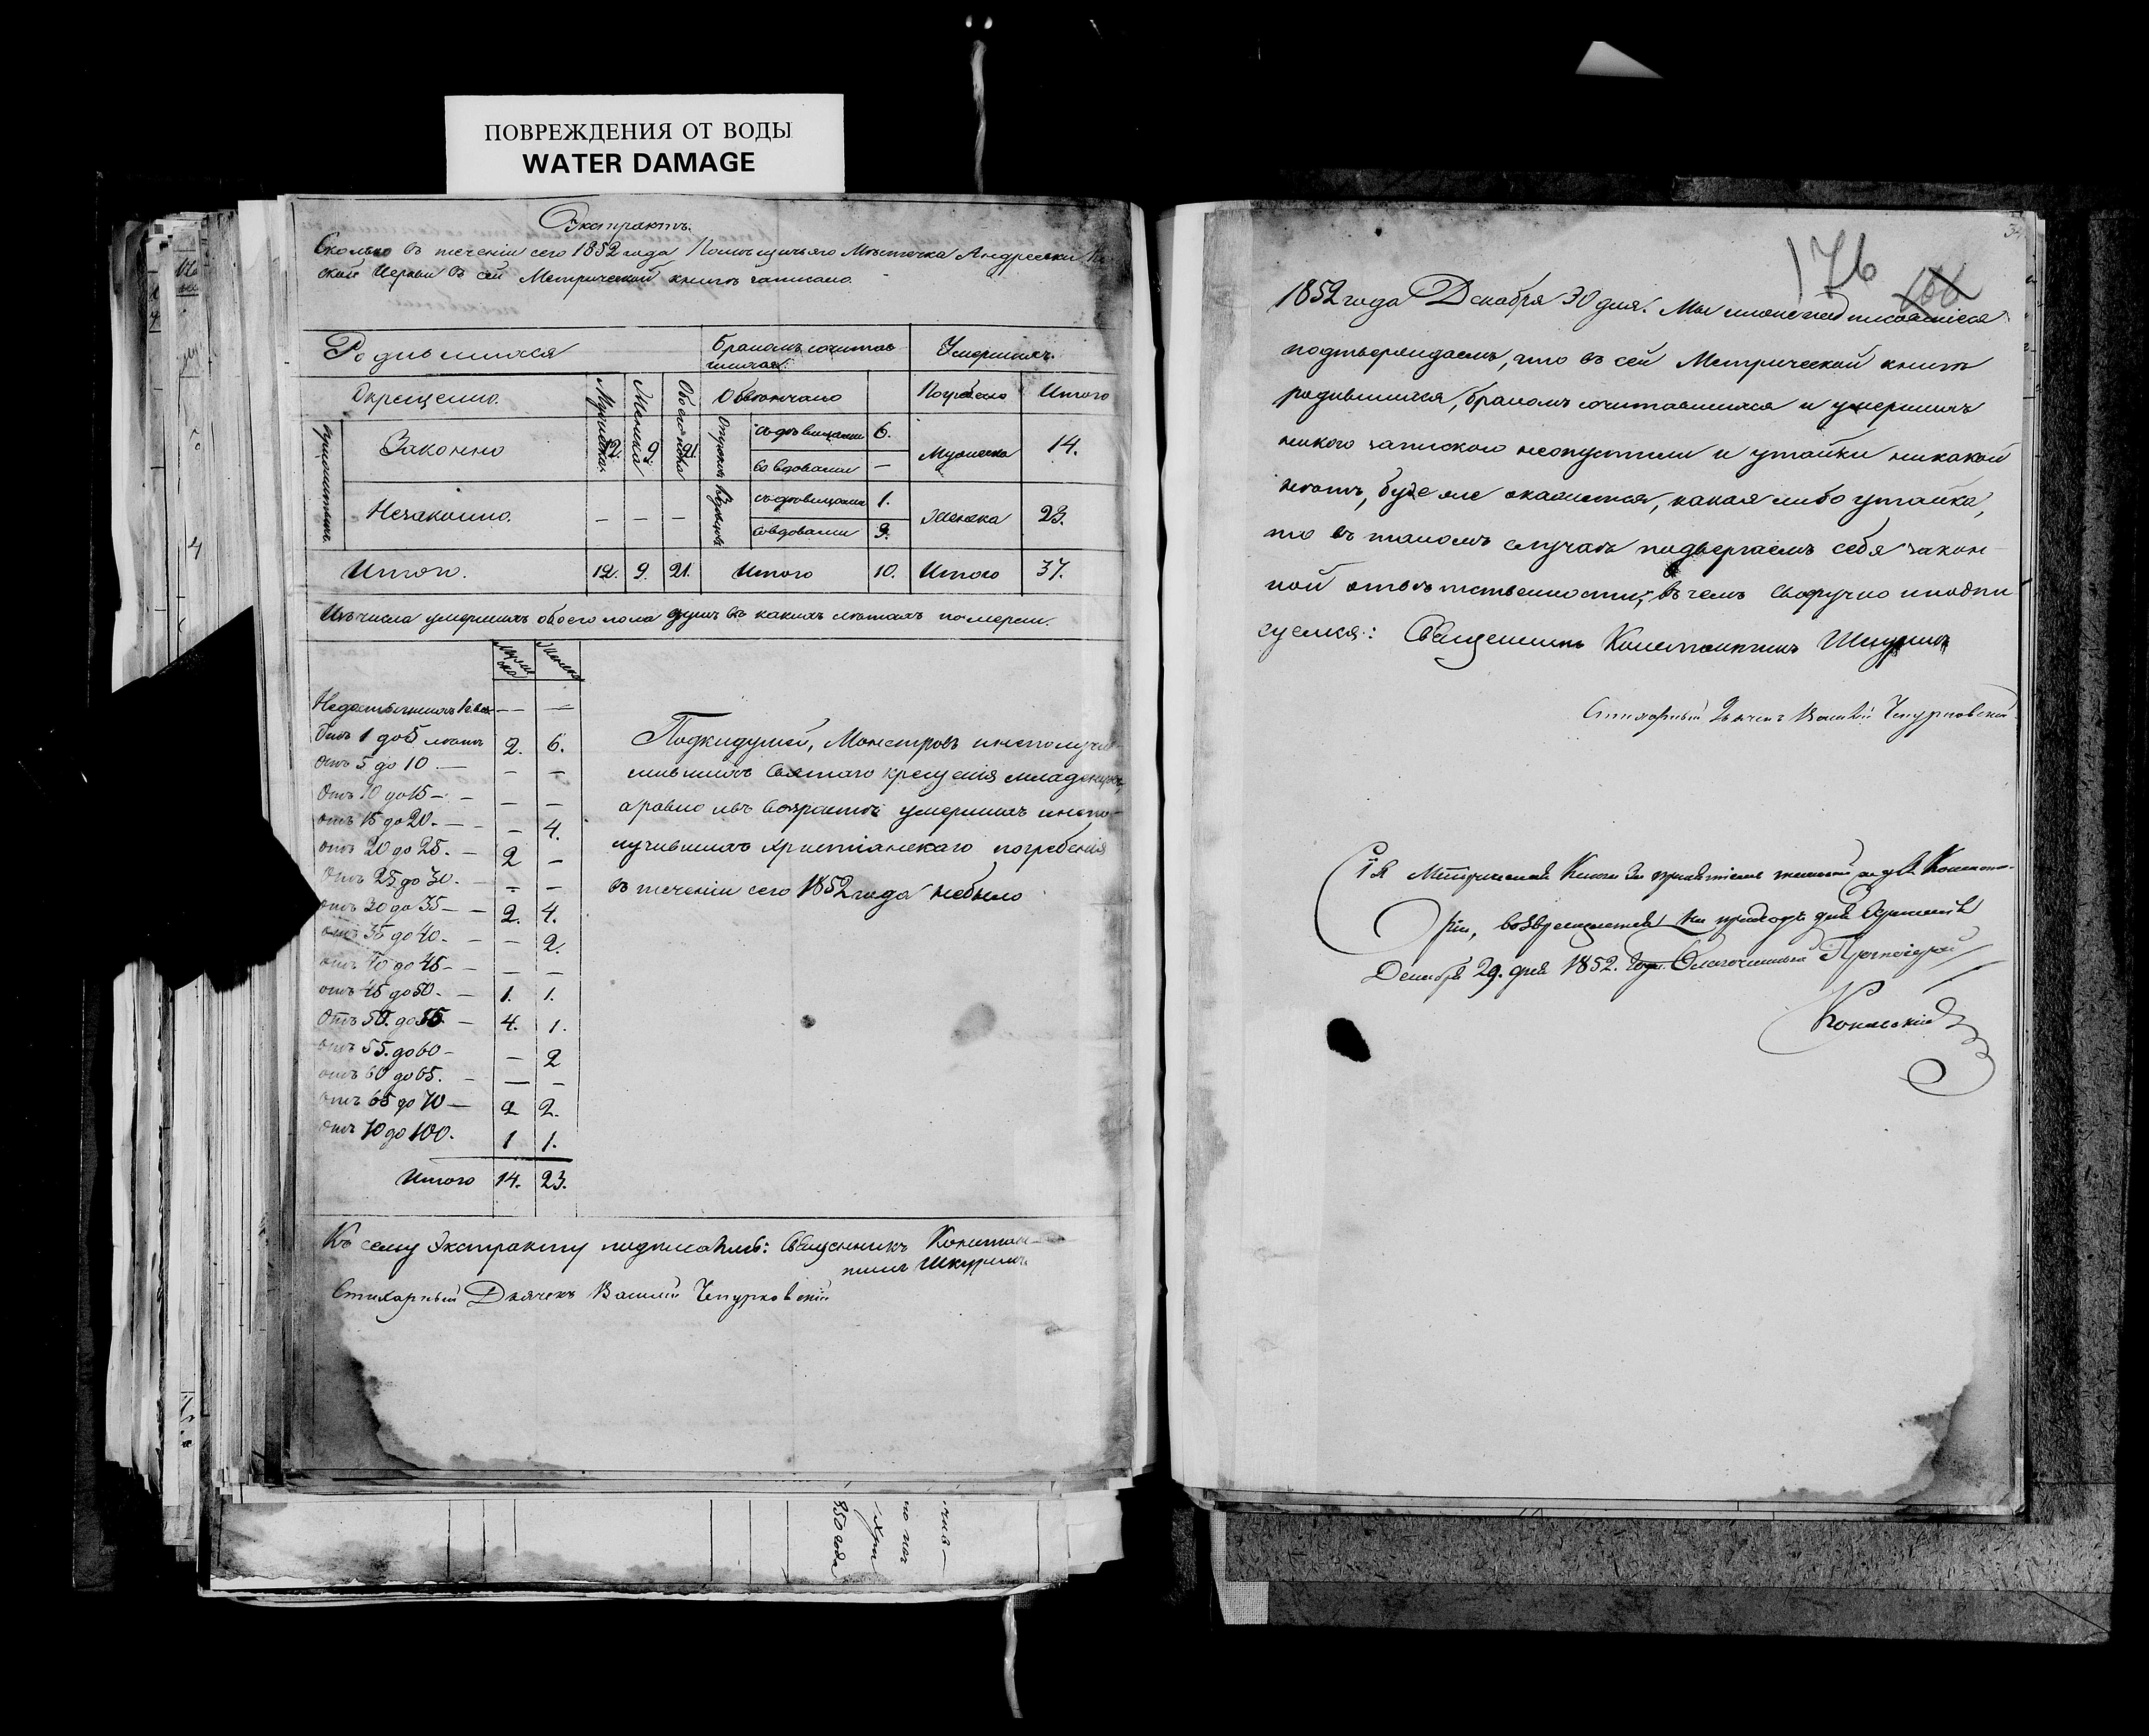 ПОВРЕЖДЕНИЯ ОТ ВОДЫ
WATER DAMAGE
Экстрактъ.
Сколько въ теченіи сего 1852 года Помѣщичьяго Мѣстечка Андреевки
ской Церкви въ сей Метрической книгѣ записано.
Родившихся
Бракомъ сочетав
шихся.
Умершихъ.
Окрещено.
Мужеска.
Женска
Обоего пола
Обвѣнчано
Погребено
Итого
Законно
12. 9. 21.
Отроковъ
съ дѣвицами 6.
со вдовами —
Мужеска 14.
Незаконно.
— — —
Вдовцовъ
съ дѣвицами 1.
со вдовами 3.
Женска 23.
Итого. 12. 9. 21. Итого 10. Итого 37.
Изъ числа умершихъ обоего пола душъ въ какихъ лѣтахъ померли.
Муже
ска
Женска
Недостигшихъ — —
Отъ 1 до 5 лѣтъ 2. 6.
отъ 5 до 10 — – –
Отъ 10 до 15 — – –
отъ 15 до 20. — – 4.
отъ 20 до 25. — 2 –
Отъ 25 до 30. — – –
отъ 30 до 35 — 2. 4.
отъ 35 до 40. — – 2.
отъ 40 до 45 — – –
отъ 45 до 50. — 1. 1.
Отъ 50. до 55 — 4. 1.
отъ 55. до 60 — – 2
отъ 60 до 65. — – –
отъ 65 до 70 — 2 2.
отъ 70 до 100. 1 1.
Итого 14. 23.
Подкидушей, Монстровъ инеполучи
вшихъ Святаго крещенія младенцовъ,
аравно ивъ возрастѣ умершихъ инепо
лучившихъ христіанскаго погребенія
въ теченіи сего 1852 года небыло
Къ сему Экстракту подписались: Священникъ Констан
тинъ Шкуринъ
Стихарный Дьячекъ Василій Чепурковскій
850 года
176
166
1852 года Декабря 30 дня. Мы нижеподписавшіеся
подтверждаемъ, что въ сей Метрической книгѣ
родившихся, бракомъ сочетавшихся и умершихъ
никого запискою неопустили и утайки никакой
нѣтъ, буде же окажется, какая либо утайка,
то въ такомъ случаѣ подвергаемъ себя закон
ной отвѣтственности, въ чемъ своручно иподпи
суемся: Священникъ Константинъ Шкуринъ
Стихарный Дьячекъ Василій Чепурковскій
Сія Метрическая Книга
рію, возвращается на приходъ для храненія
Декабря 29. дня 1852. года. Благочинный Протоіерей